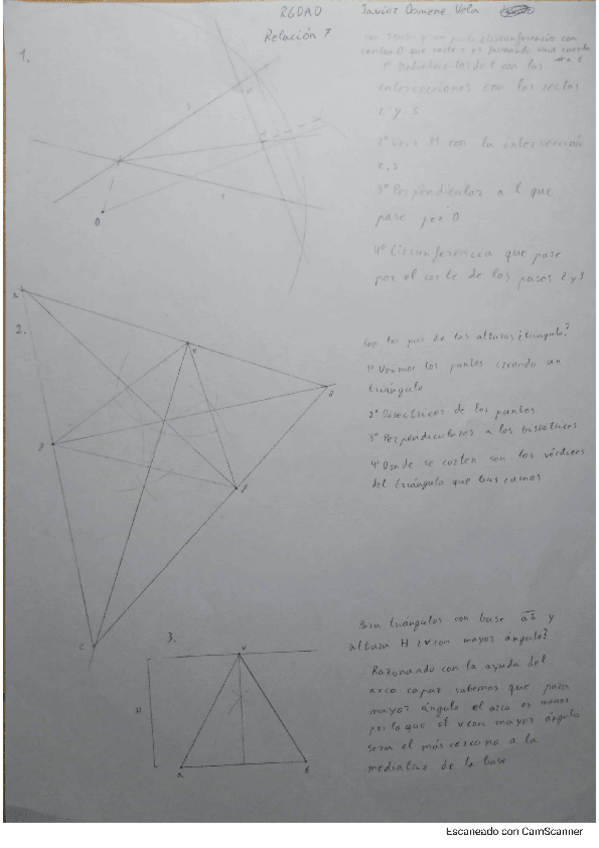 RGDAD Javier Domene Vela
Relación 7
1.
centro O que corte
1º Mediatriz los de l con las
intersecciones con las rectas
r y s
2º Unir M con la intersección
r, s
3º Perpendicular a l que
pase por O
4º Circunferencia que pase
por el corte de los pasos 2 y 3
s
r
O
A
2.
B
C
Con los pies de las alturas ¿triángulo?
1º Unimos los puntos creando un
triángulo
2º Bisectrices de los puntos
3º Perpendiculares a las bisectrices
4º Donde se corten son los vértices
del triángulo que buscamos
3.
V
H
a
Para triángulos con base y
altura H ¿V con mayor ángulo?
Razonando con la ayuda del
arco capaz sabemos que para
mayor ángulo el arco es menor
por lo que el V con mayor ángulo
sera el más cercano a la
mediatriz de la base
Escaneado con CamScanner